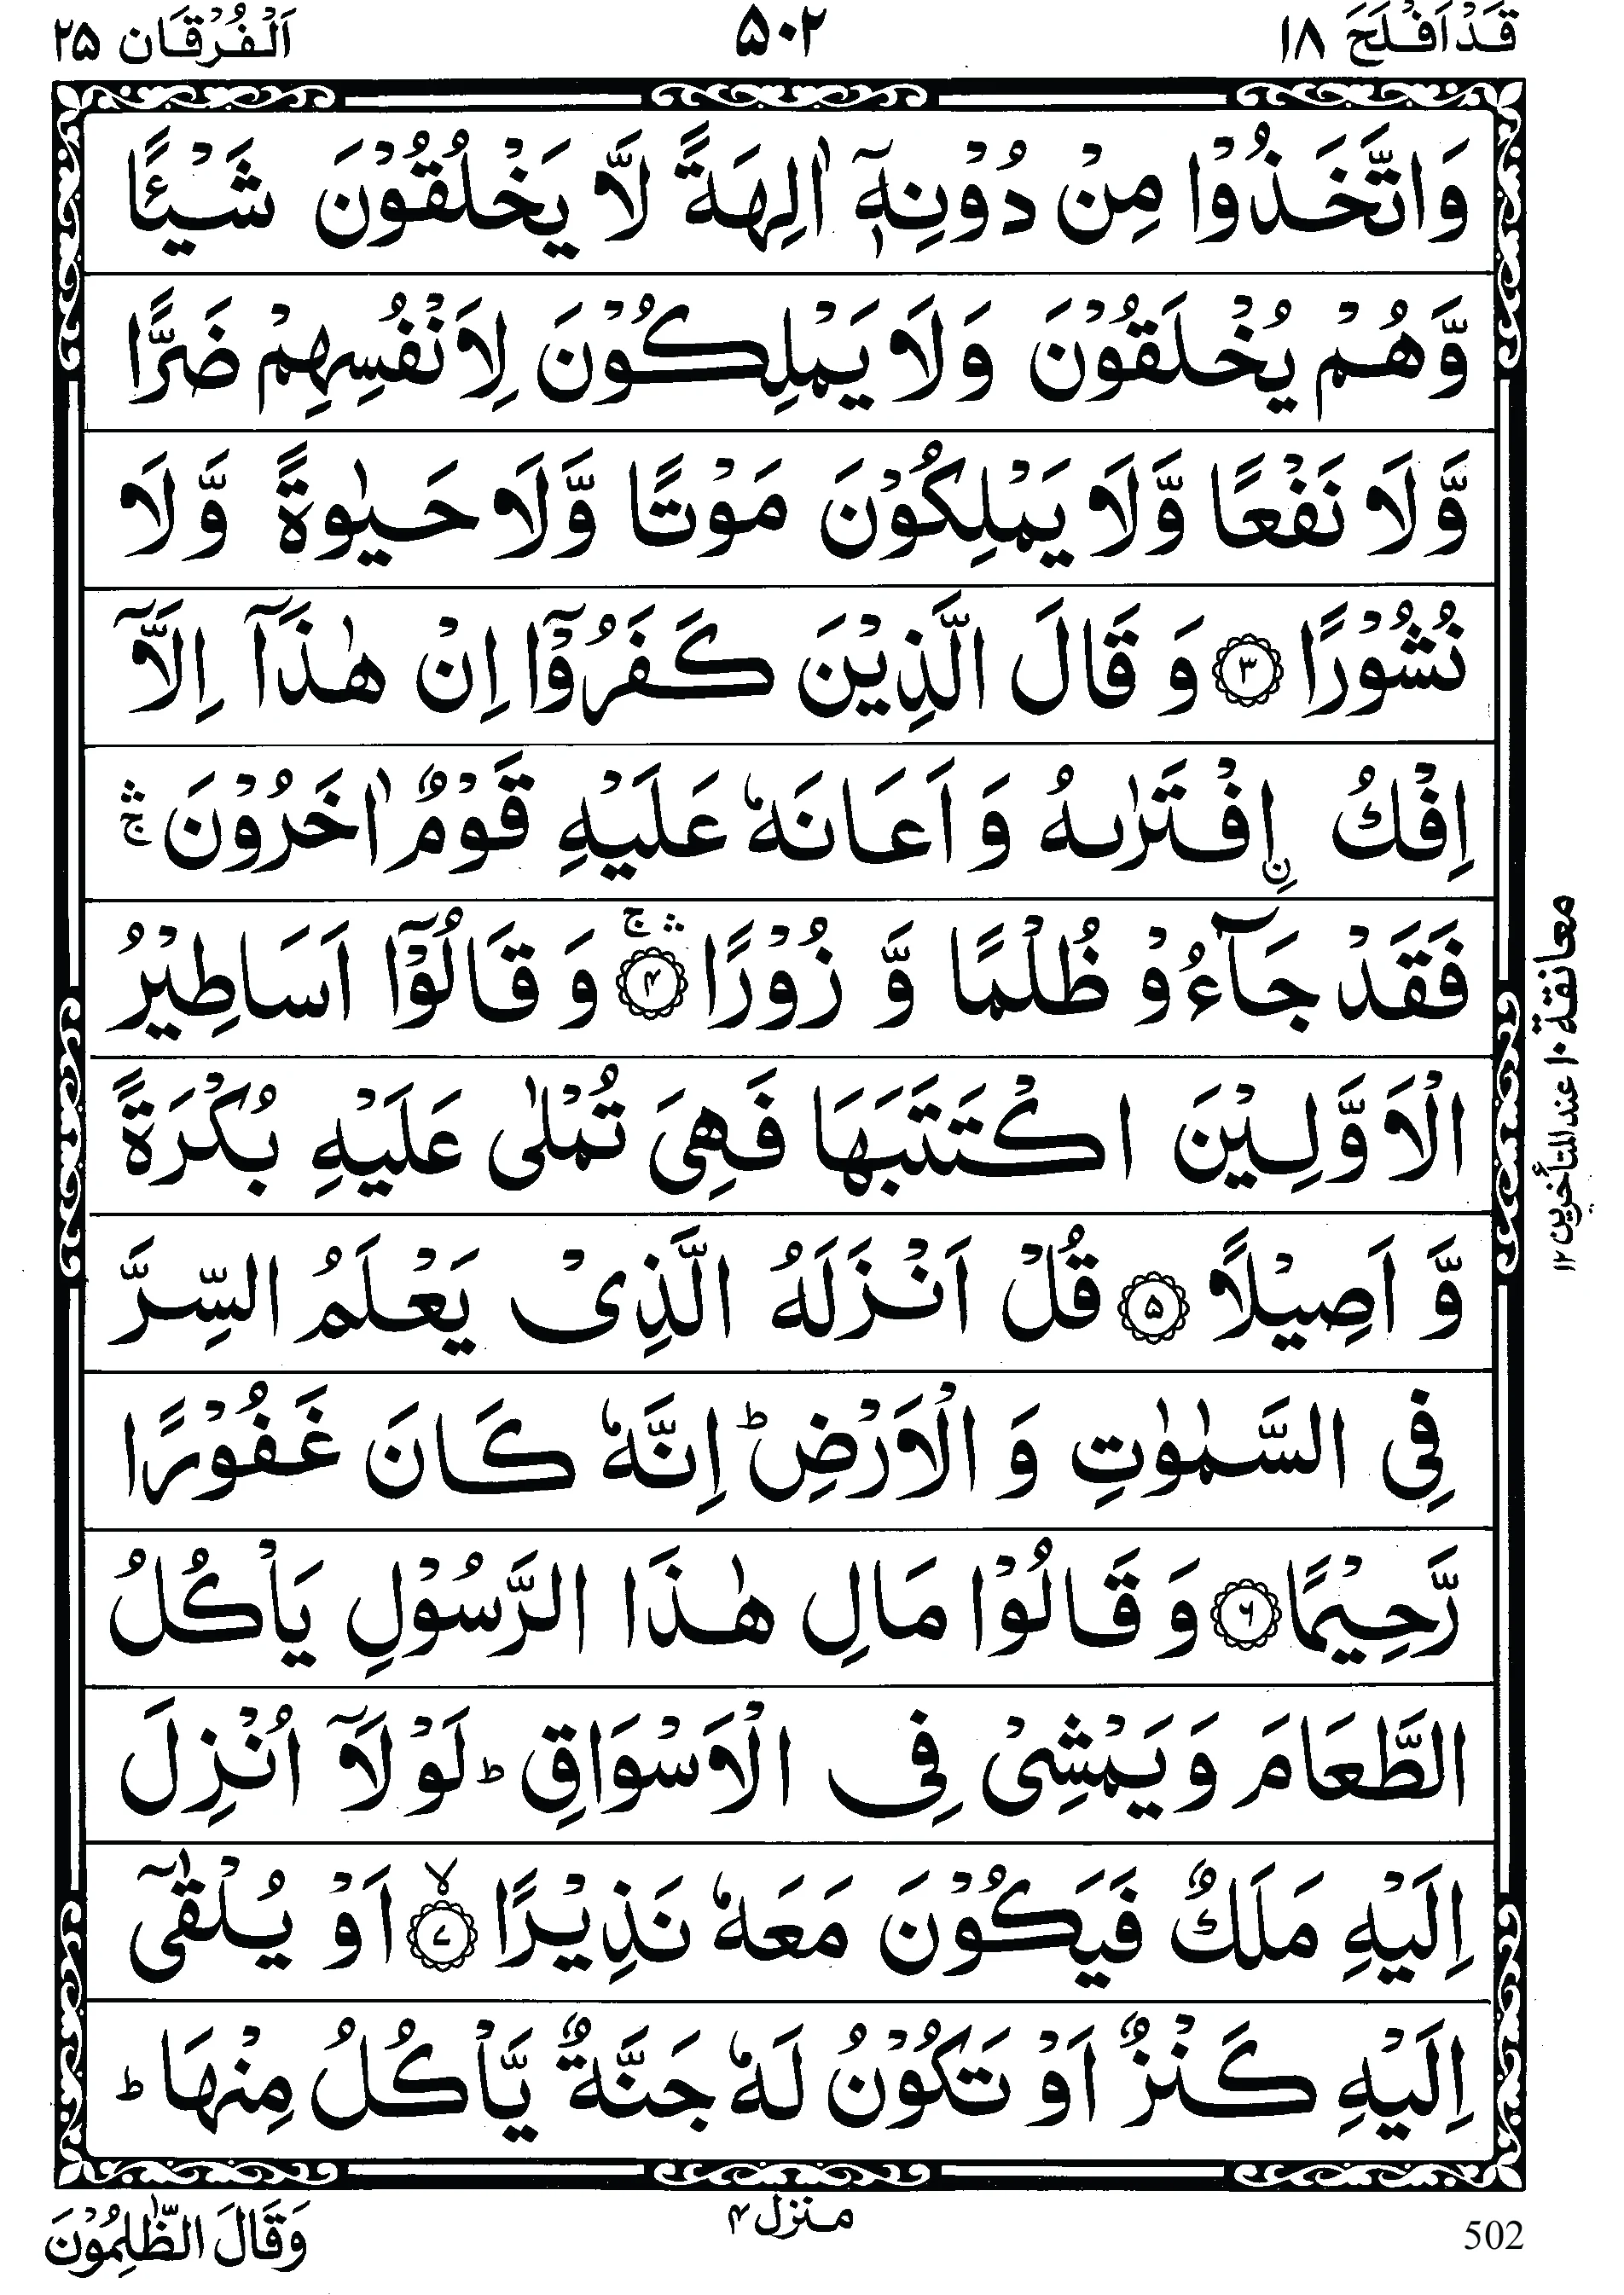 قَدْ اَفْلَحَ ۱۸ ۵۰۲ اَلْفُرْقَان ۲۵
وَاتَّخَذُوْا مِنْ دُوْنِهٖۤ اٰلِهَةً لَّا يَخْلُقُوْنَ شَيْـًٔا
وَّهُمْ يُخْلَقُوْنَ وَلَا يَمْلِكُوْنَ لِاَنْفُسِهِمْ ضَرًّا
وَّلَا نَفْعًا وَّلَا يَمْلِكُوْنَ مَوْتًا وَّلَا حَيٰوةً وَّلَا
نُشُوْرًا ﴿۳﴾ وَ قَالَ الَّذِيْنَ كَفَرُوْۤا اِنْ هٰذَاۤ اِلَّاۤ
اِفْكُ ۨافْتَرٰىهُ وَ اَعَانَهٗ عَلَيْهِ قَوْمٌ اٰخَرُوْنَ ۛۚ
فَقَدْ جَآءُوْ ظُلْمًا وَّ زُوْرًا ﴿۴﴾ ۛۚ وَ قَالُوْۤا اَسَاطِيْرُ
الْاَوَّلِيْنَ اكْتَتَبَهَا فَهِىَ تُمْلٰى عَلَيْهِ بُكْرَةً
وَّ اَصِيْلًا ﴿۵﴾ قُلْ اَنْزَلَهُ الَّذِىْ يَعْلَمُ السِّرَّ
فِى السَّمٰوٰتِ وَ الْاَرْضِ ؕ اِنَّهٗ كَانَ غَفُوْرًا
رَّحِيْمًا ﴿۶﴾ وَ قَالُوْا مَالِ هٰذَا الرَّسُوْلِ يَاْكُلُ
الطَّعَامَ وَ يَمْشِىْ فِى الْاَسْوَاقِ ؕ لَوْلَاۤ اُنْزِلَ
اِلَيْهِ مَلَكٌ فَيَكُوْنَ مَعَهٗ نَذِيْرًا ﴿۷﴾ ۙ اَوْ يُلْقٰٓى
اِلَيْهِ كَنْزٌ اَوْ تَكُوْنُ لَهٗ جَنَّةٌ يَّاْكُلُ مِنْهَا ؕ
معانقة ۱۰ عند المتأخرين ۱۲
منزل ۴
وَقَالَ الظّٰلِمُوْنَ
502